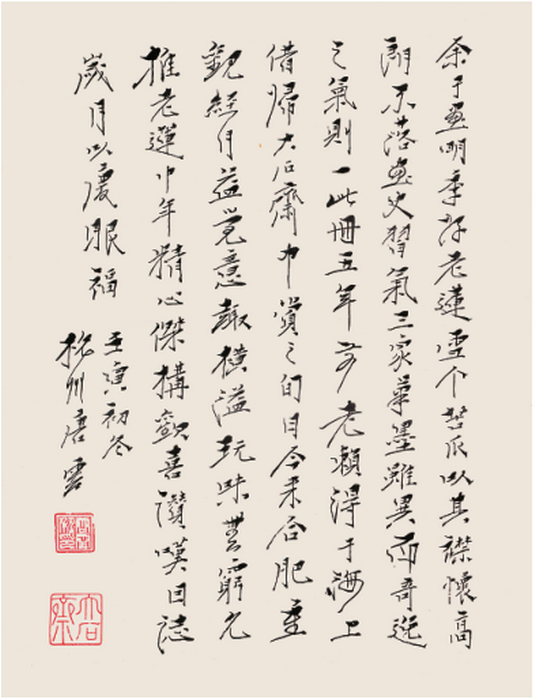 余于畫明季好老蓮雪个苦瓜以其襟懷高
朗不落畫史習氣三家筆墨雖異而奇逸
之氣則一此冊五年前老瀨得于海上
借歸大石齋中賞之旬日今來合肥重
觀經月益覺意趣橫溢玩味無窮允
推老蓮中年精心傑構歡喜讚嘆因誌
歲月以慶眼福
壬寅初冬
杭州唐雲
大石齋